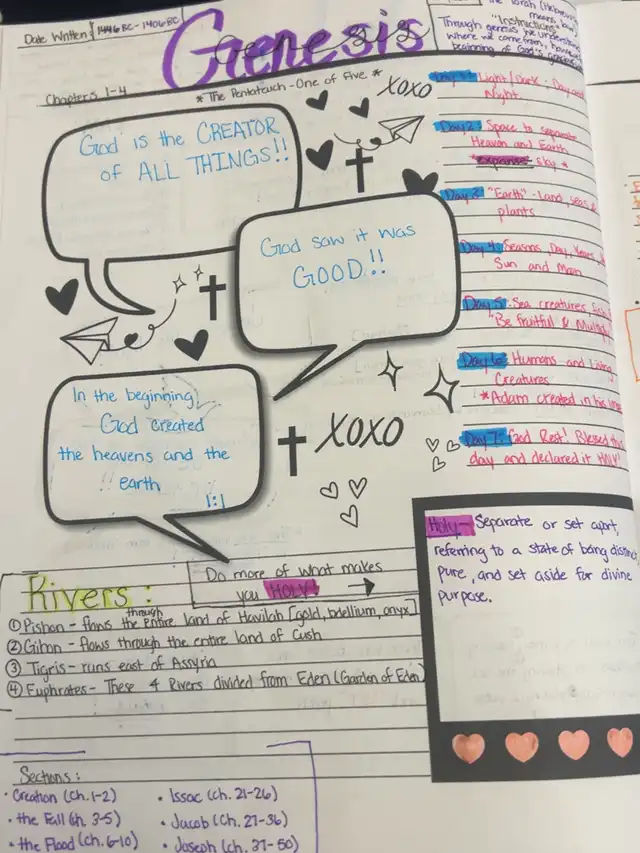 Date Written: 1446 BC - 1406 BC
Genesis
the Torah (Hebrew)
means
"Instructions"
Through genesis we understand
where we come from,
beginning of God's
Chapters 1-4
* The Pentateuch - One of Five *
XOXO
God is the CREATOR
of ALL THINGS!!
God saw it was
GOOD!!
In the beginning,
God created
the heavens and the
earth
1:1
XOXO
Day 1: Light/Dark; Day and
Night
Day 2: Space to separate
Heaven and Earth
expanse sky *
Day 2: "Earth" - Land, seas &
plants
Day 4: Seasons, Day, Years,
Sun and Moon
Day 5: Sea creatures,
"Be fruitful & Multiply
Day 6: Humans and living
Creatures
*Adam created in his
Day 7: God Rest! Blessed this
day and declared it HOLY!
Holy - Separate or set apart,
referring to a state of being distinct,
pure, and set aside for divine
purpose.
Do more of what makes
you HOLY →
Rivers:
① Pishon - flows through the entire land of Havilah [gold, bdellium, onyx]
② Gihon - flows through the entire land of Cush
③ Tigris - runs east of Assyria
④ Euphrates - These 4 Rivers divided from Eden (Garden of Eden)
Sections:
• Creation (ch. 1-2)
• the Fall (ch. 3-5)
• the Flood (ch. 6-10)
• Issac (ch. 21-26)
• Jacob (ch. 27-36)
• Joseph (ch. 37-50)